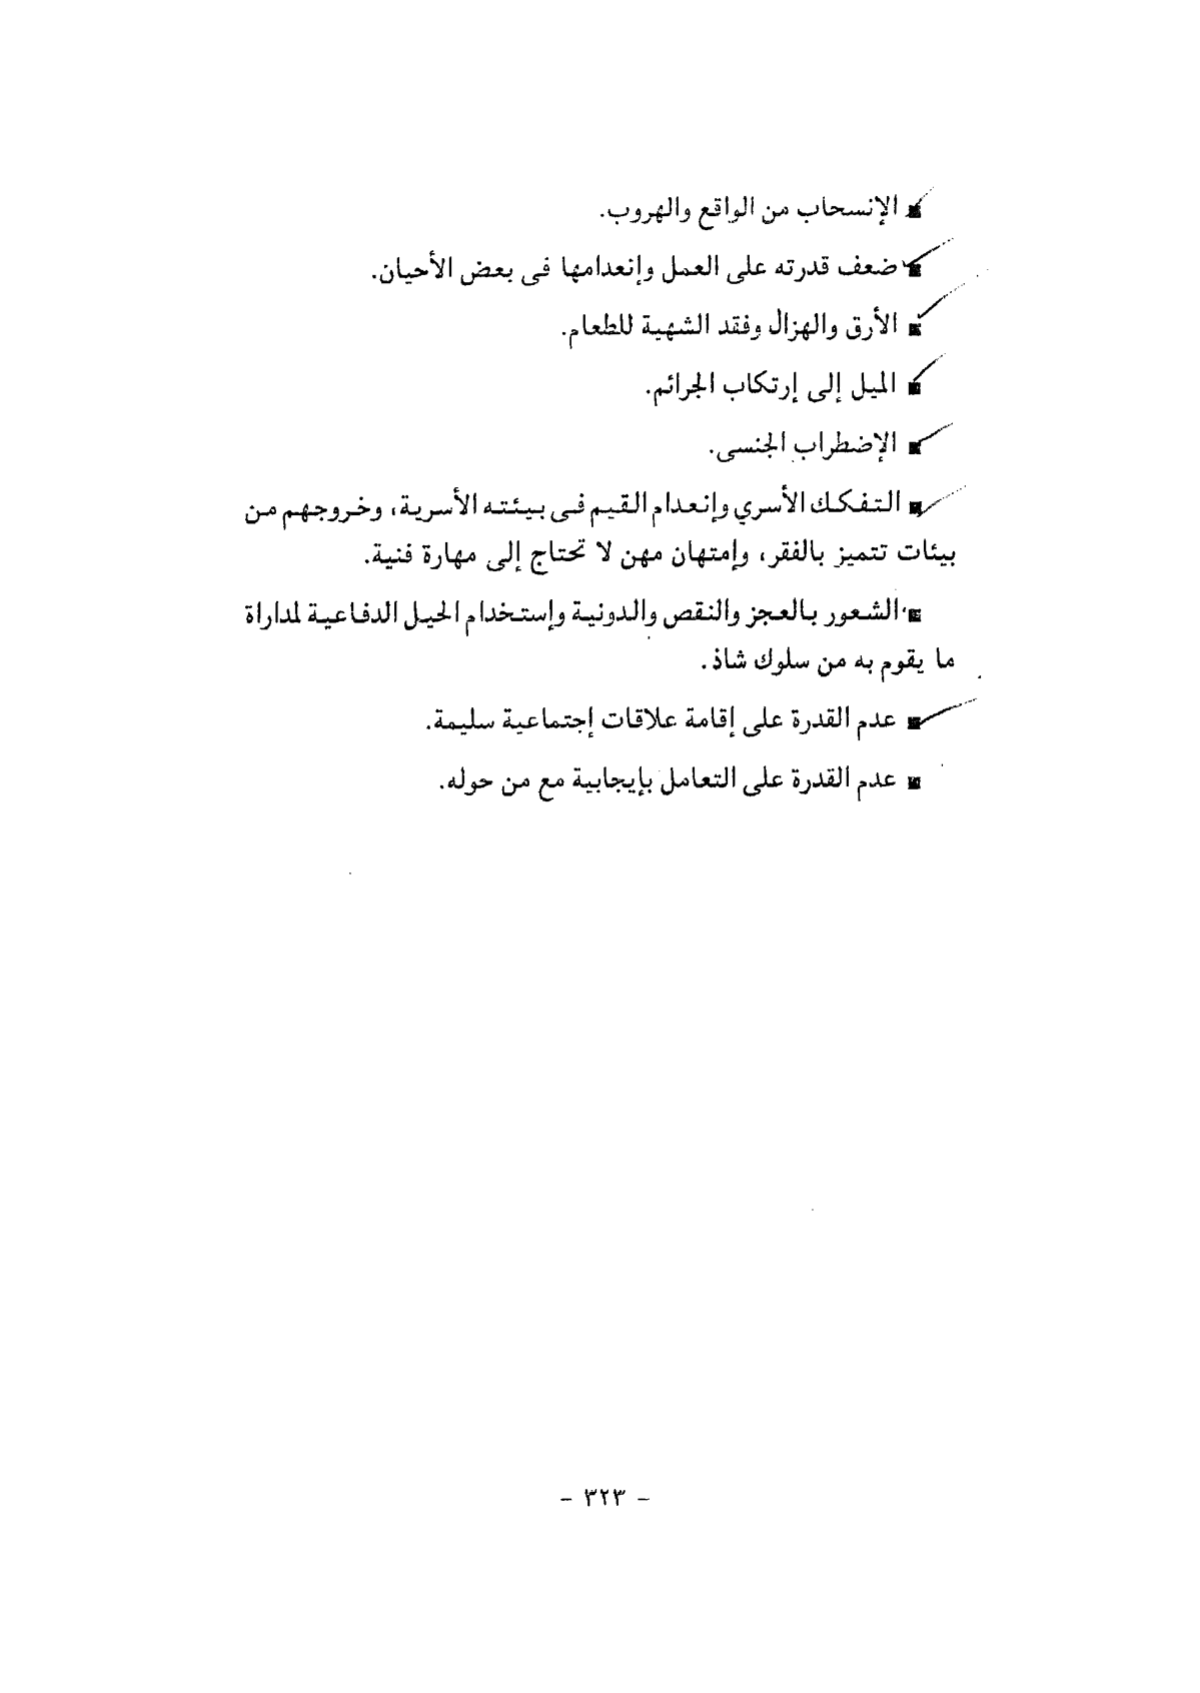 ■ الإنسحاب من الواقع والهروب.
■ ضعف قدرته على العمل وإنعدامها فى بعض الأحيان.
■ الأرق والهزال وفقد الشهية للطعام.
■ الميل إلى إرتكاب الجرائم.
■ الإضطراب الجنسى.
■ التفكك الأسري وإنعدام القيم فى بيئته الأسرية، وخروجهم من
بيئات تتميز بالفقر، وإمتهان مهن لا تحتاج إلى مهارة فنية.
■ الشعور بالعجز والنقص والدونية وإستخدام الحيل الدفاعية لمداراة
ما يقوم به من سلوك شاذ.
■ عدم القدرة على إقامة علاقات إجتماعية سليمة.
■ عدم القدرة على التعامل بإيجابية مع من حوله.
- ٣٢٣ -